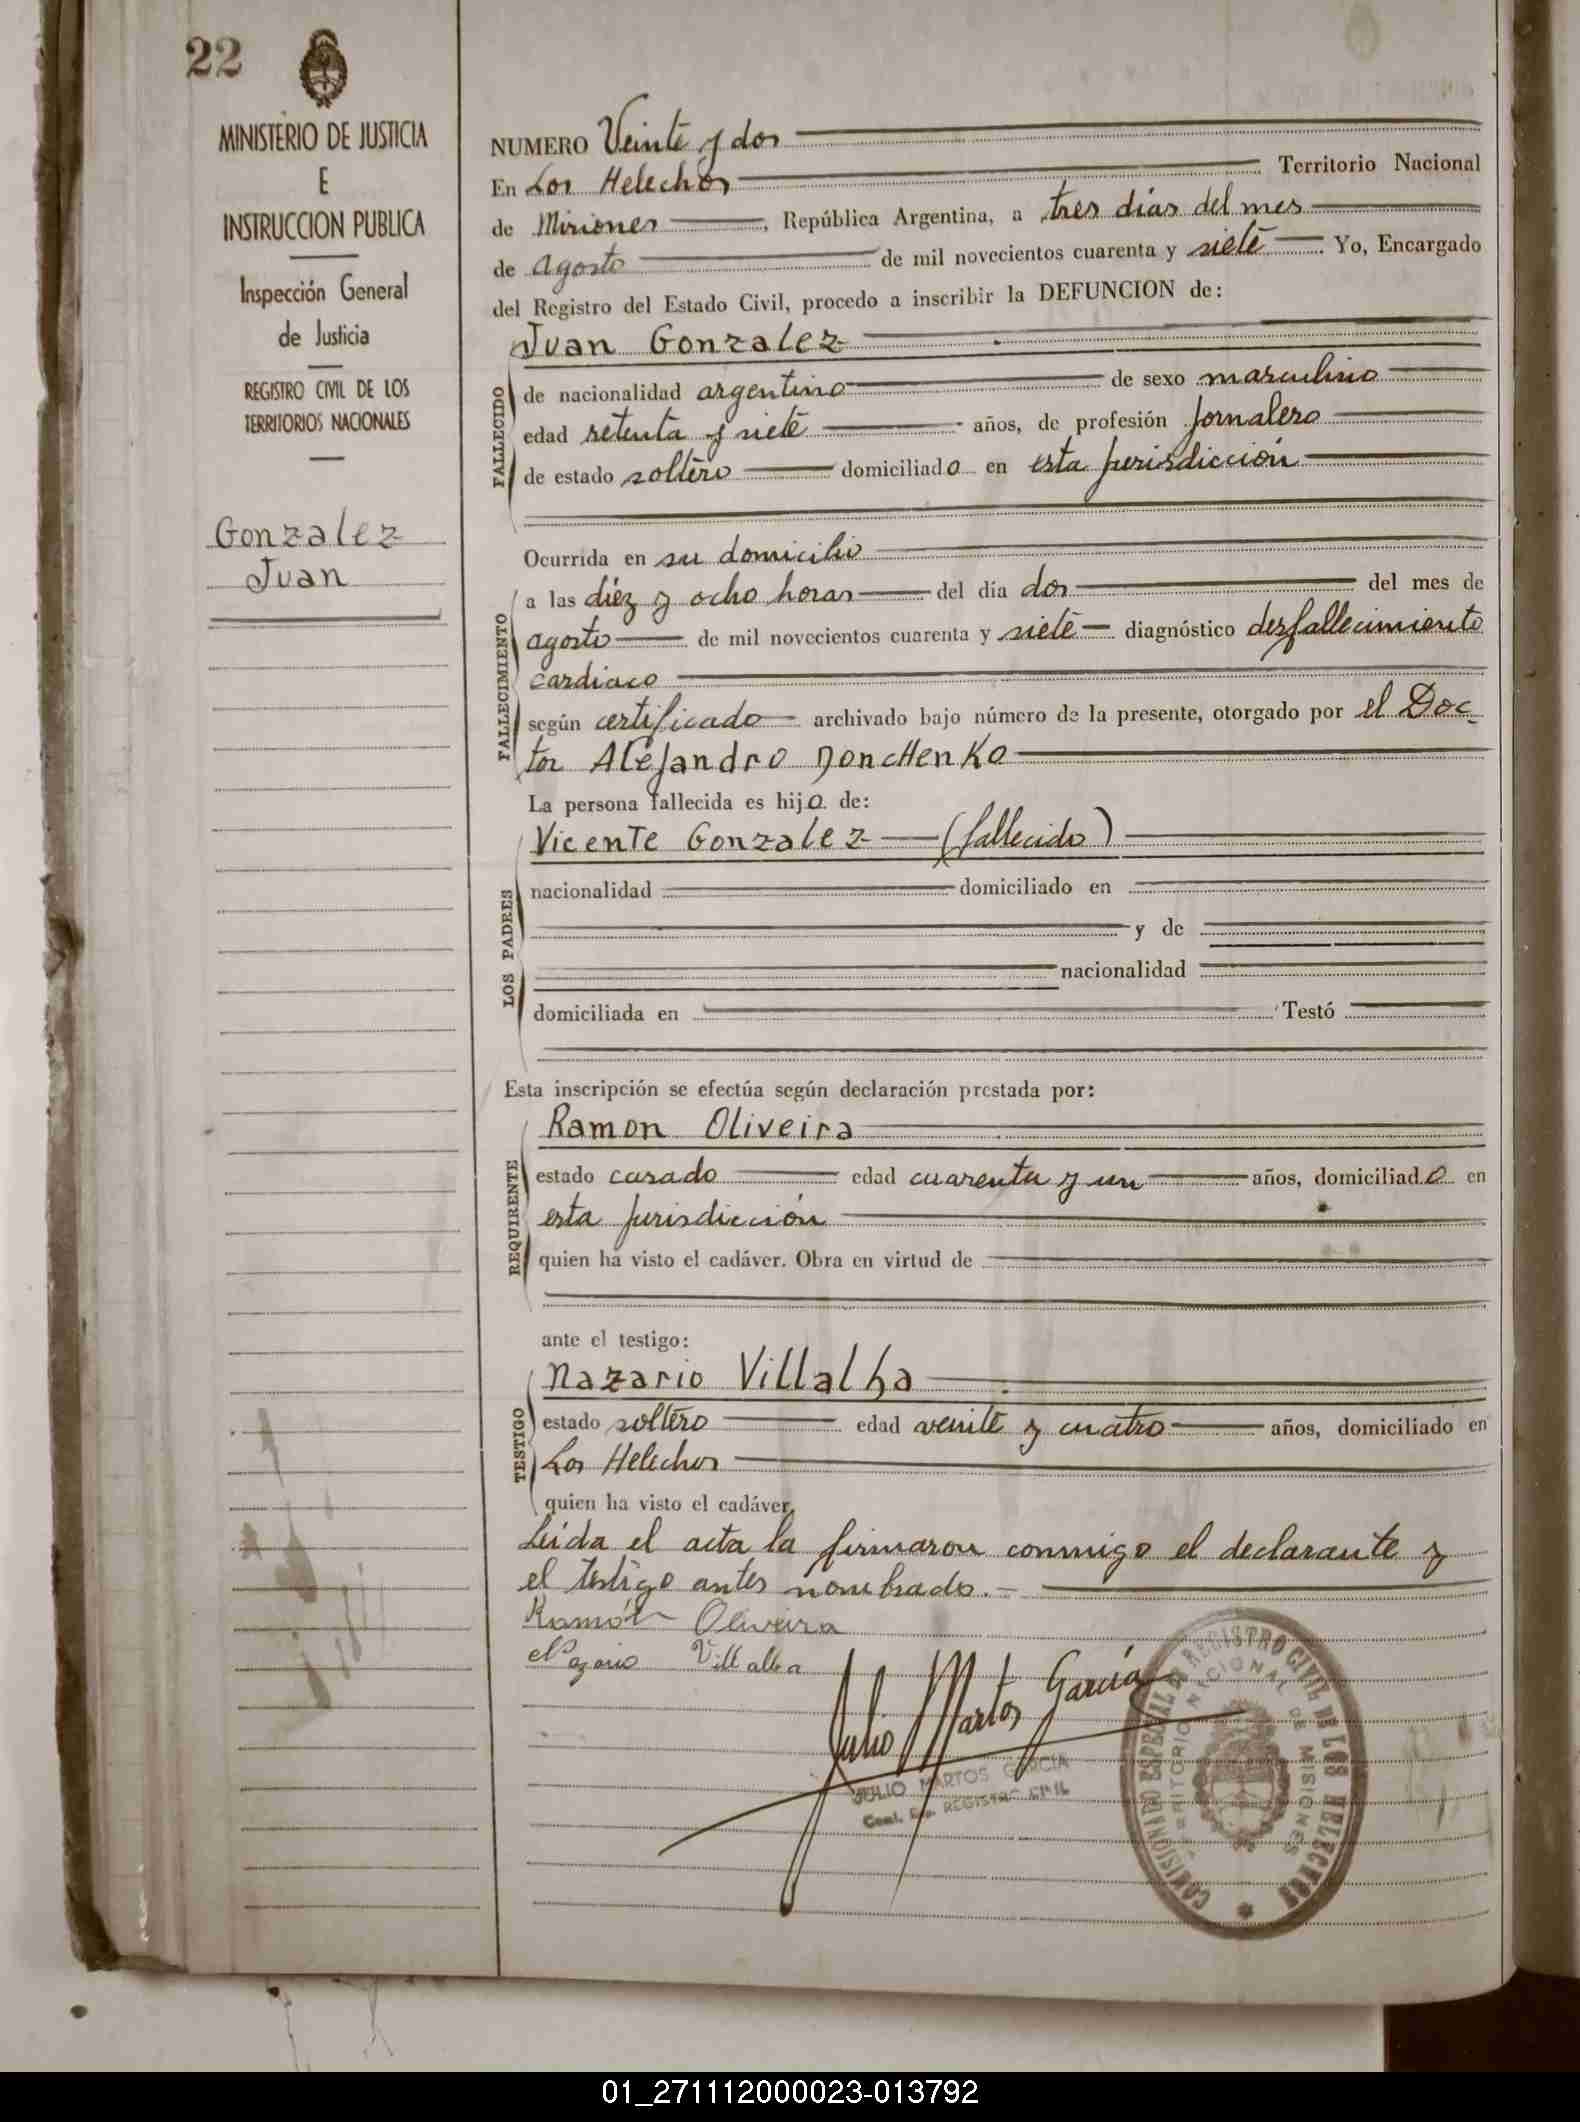 22
MINISTERIO DE JUSTICIA
E
INSTRUCCION PUBLICA
Inspección General
de Justicia
REGISTRO CIVIL DE LOS
TERRITORIOS NACIONALES
Gonzalez
Juan
NUMERO Veinte y dos
En Los Helechos Territorio Nacional
de Misiones, República Argentina, a tres días del mes
de agosto de mil novecientos cuarenta y siete. Yo, Encargado
del Registro del Estado Civil, procedo a inscribir la DEFUNCION de:
Juan Gonzalez
FALLECIDO
de nacionalidad argentino de sexo masculino
edad setenta y siete años, de profesión Jornalero
de estado soltero domiciliado en esta jurisdicción
Ocurrida en su domicilio
FALLECIMIENTO
a las diez y ocho horas del día dos del mes de
agosto de mil novecientos cuarenta y siete diagnóstico desfallecimiento
cardiaco
según certificado archivado bajo número de la presente, otorgado por el Doc-
tor Alejandro DoncHenKo
La persona fallecida es hijo de:
Vicente Gonzalez (fallecido)
LOS PADRES
nacionalidad domiciliado en
y de
nacionalidad
domiciliada en Testó
Esta inscripción se efectúa según declaración prestada por:
Ramon Oliveira
REQUIRENTE
estado casado edad cuarenta y un años, domiciliado en
esta jurisdicción
quien ha visto el cadáver. Obra en virtud de
ante el testigo:
Nazario Villalba
TESTIGO
estado soltero edad veinte y cuatro años, domiciliado en
Los Helechos
quien ha visto el cadáver.
Leida el acta la firmaron conmigo el declarante y
el testigo antes nombrado.-
Ramón Oliveira
Nazario Villalba
Julio Martos García
JULIO MARTOS GARCIA
Comi. Esp. REGISTRO CIVIL
COMISIONADO ESPECIAL DE REGISTRO CIVIL DE LOS HELECHOS
TERRITORIO NACIONAL DE MISIONES
01_271112000023-013792